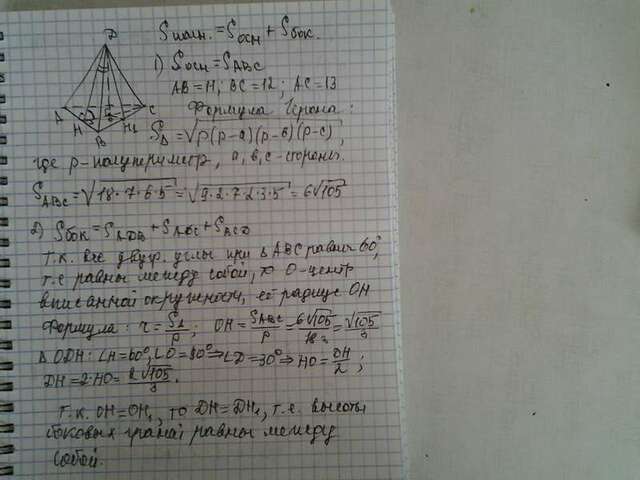 D
A
C
B
H
H₁
O
Sполн. = Sосн + Sбок.
1) Sосн = SABC
AB = 11; BC = 12; AC = 13
Формула Герона:
SΔ = √p(p-a)(p-в)(p-c),
где p-полупериметр, a, в, c-стороны.
SABC = √18·7·6·5 = √9·2·7·2·3·5 = 6√105
2) Sбок = SADB + SADC + SBCD
Т.к. все двугр. углы при Δ ABC равны 60°,
т.е равны между собой, то O-центр
вписанной окружности, её радиус OH
Формула: r = SΔ/p; OH = SABC/p = 6√105/18 = √105/3
Δ ODH: ∠H=60°, ∠O=90° ⇒ ∠D=30° ⇒ HO = DH/2;
DH = 2·HO = 2√105/3.
Т.к. OH = OH₁, то DH = DH₁, т.е. высоты
боковых граней равны между
собой.